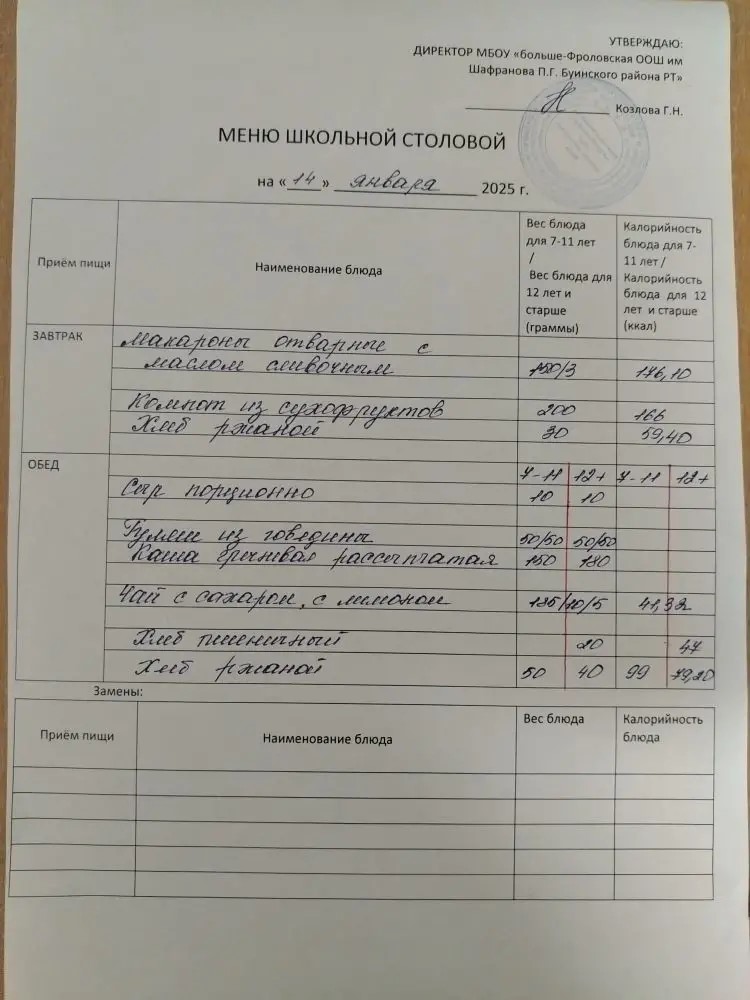 УТВЕРЖДАЮ:
ДИРЕКТОР МБОУ «больше-Фроловская ООШ им
Шафранова П.Г. Буинского района РТ»
Козлова Г.Н.
МЕНЮ ШКОЛЬНОЙ СТОЛОВОЙ
на « 14 » января 2025 г.
Приём пищи
Наименование блюда
Вес блюда
для 7-11 лет
/
Вес блюда для
12 лет и
старше
(граммы)
Калорийность
блюда для 7-
11 лет /
Калорийность
блюда для 12
лет и старше
(ккал)
ЗАВТРАК
Макароны отварные с
маслом сливочным 150/3 176,10
Компот из сухофруктов 200 166
Хлеб ржаной 30 59,40
ОБЕД
7-11 12+ 7-11 12+
Сыр порционно 10 10
Гуляш из говядины 50/50 50/50
Каша гречневая рассыпчатая 150 180
Чай с сахаром, с лимоном 185/10/5 41,32
Хлеб пшеничный 20 47
Хлеб ржаной 50 40 99 79,20
Замены:
Приём пищи
Наименование блюда
Вес блюда
Калорийность
блюда